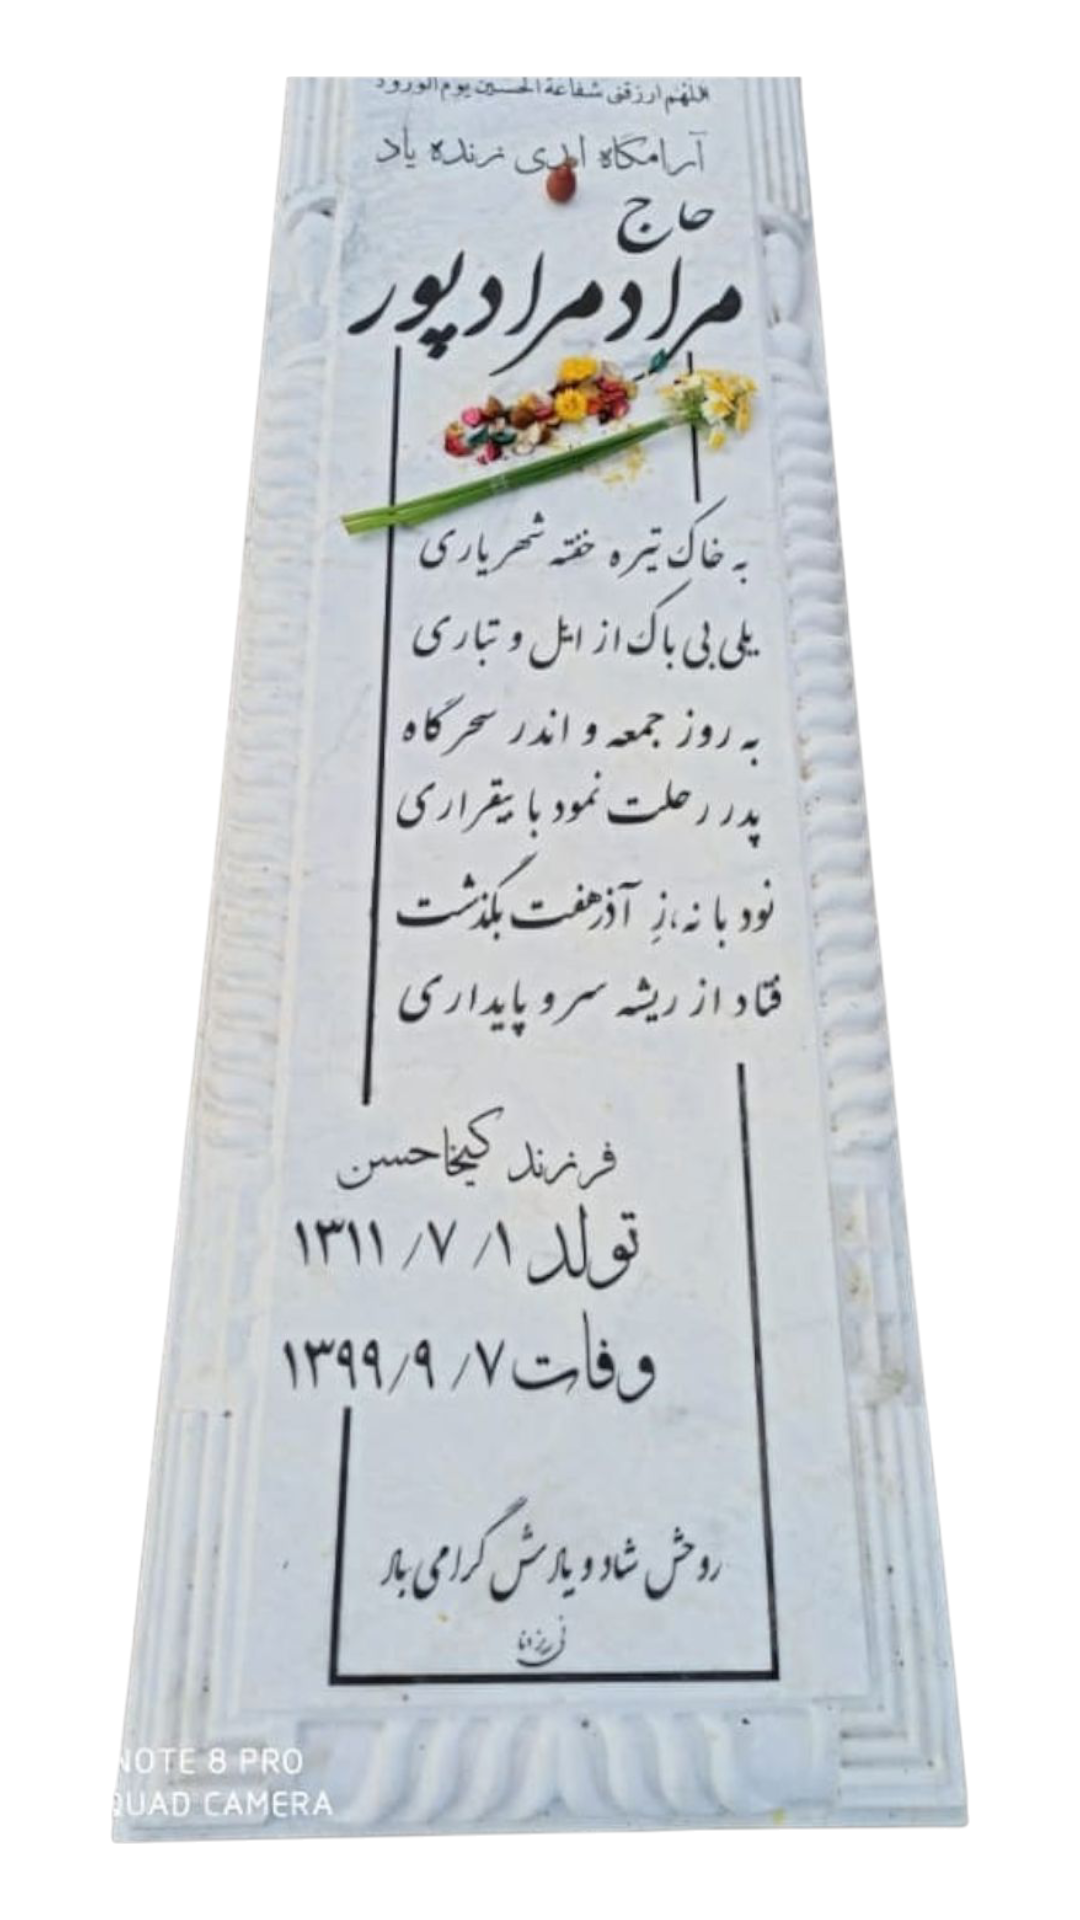 اللهم ارزقنی شفاعة الحسین یوم الورود
آرامگاه ابدی زنده یاد
حاج
مراد مرادپور
به خاک تیره خفته شهریاری
یلی بی باک از ایل و تباری
به روز جمعه و اندر سحرگاه
پدر رحلت نمود با بیقراری
نود با نه، زِ آذر هفت بگذشت
فتاد از ریشه سرو پایداری
فرزند کیخاحسن
تولد ۱/ ۷/ ۱۳۱۱
وفات ۷/ ۹/ ۱۳۹۹
روحش شاد و یادش گرامی باد
NOTE 8 PRO
QUAD CAMERA